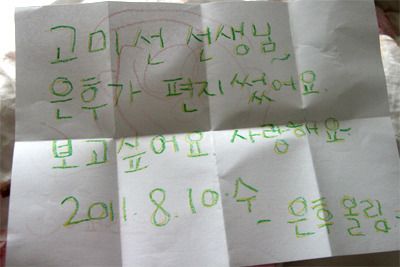 고미선 선생님~
은후가 편지썼어요.
보고싶어요 사랑해요~
2011.8.10.수
- 은후올림.